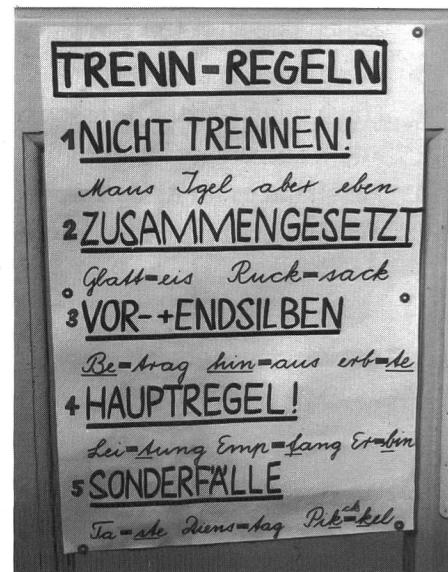 TRENN=REGELN
1 NICHT TRENNEN!
Maus Igel aber eben
2 ZUSAMMENGESETZT
Glatt=eis Ruck=sack
3 VOR-+ENDSILBEN
Be=trag hin=aus erb=te
4 HAUPTREGEL!
Lei=tung Emp=fang Er=bin
5 SONDERFÄLLE
ck
Ta=ste Diens=tag Pik=kel